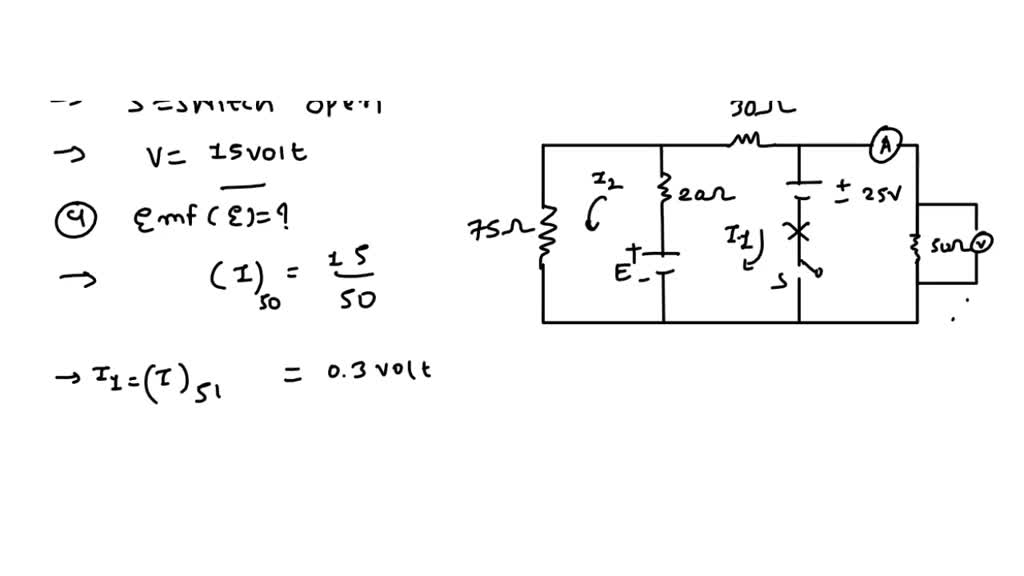 → S = switch open
→ V = 15 volt
(a) Emf (ε) = ?
→ (I)50 = 15/50
→ I1 = (I)51 = 0.3 volt
30Ω
A
I2
20Ω
+
- 25V
75Ω
I1
50Ω
V
+
E -
S